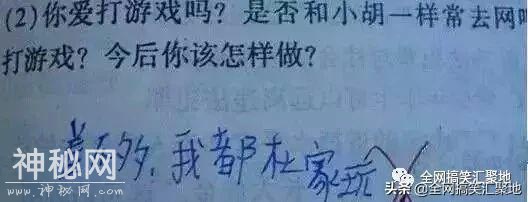 (2)你爱打游戏吗？是否和小胡一样常去网
打游戏？今后你该怎样做？
差不多，我都在家玩
神秘网
WWW.ZKXN.COM
全网搞笑汇聚地
头条@全网搞笑汇聚地